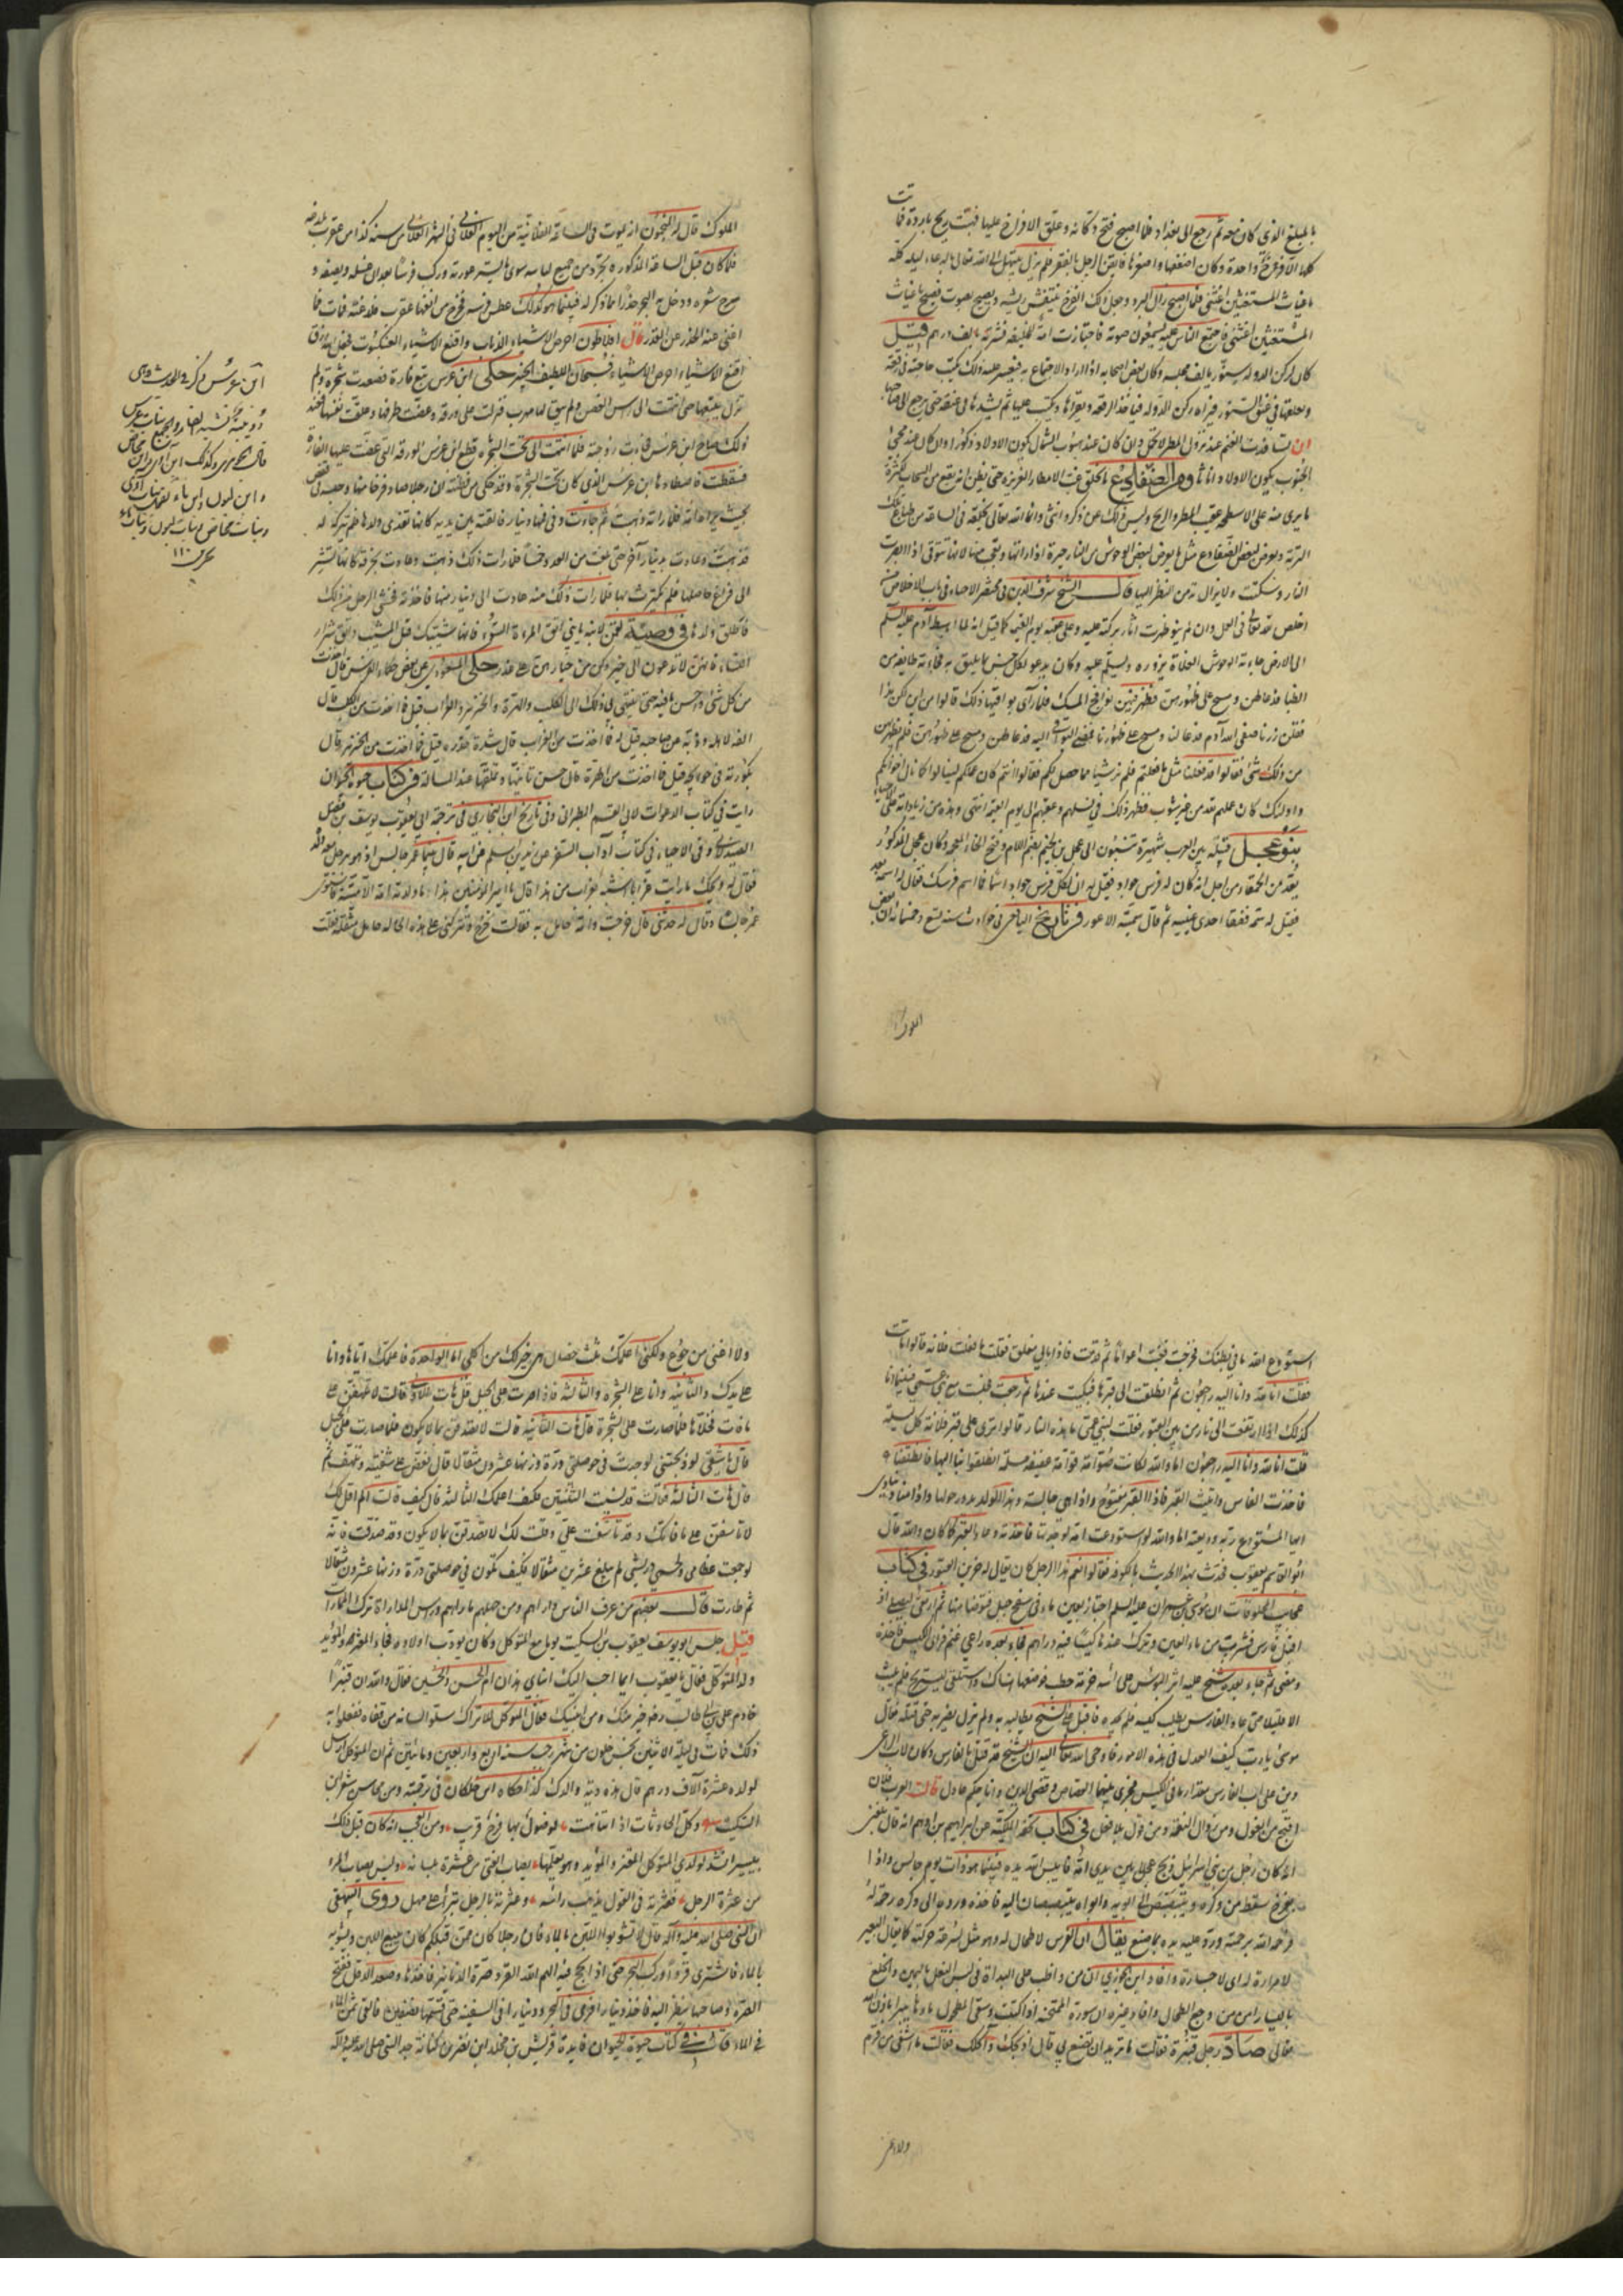 بالمبلغ الذي كان معه ثم رجع الى بغداد فلما اصبح فتح دكانه وعلق الافراخ عليها فهبت ريح باردة فماتت
كلها الا فرخا واحدة وكان اضعفها واصغرها فايقن الرجل بالفقر فلم يزل يبتهل الى الله تعالى بالدعاء ليله كله
يا غياث المستغيثين اغثني فلما اصبح زال البرد وجعل ذلك الفرخ ينتفش ريشه ويصيح بصوت فصيح يا غياث
المستغيثين اغثني فاجتمع الناس عليه يسمعون صوته فاجتازت امة للخليفة فشرته بالف درهم قيل
كان لركن الدوله سنور يالف مجلسه وكان بعض اصحابه اذا اراد الاجتماع به فيعسر عليه ذلك يكتب حاجته في رقعة
ويعلقها في عنق السنور فيراه ركن الدوله فياخذ الرقعه ويقراها ويكتب عليها ثم يشدها في عنقه حتى يرجع الى صاحبها
الجنوب يكون الاولاد اناثا ومن الضفادع ما يخلق غب الامطار الغزيرة حتى يظن انه يقع من السحاب لكثرة
ما يرى منه على الاسطحه عقب المطر والريح وليس ذلك عن ذكر وانثى وانما الله تعالى يخلقه في الساعة من طباع تلك
التربة ويعرض لبعض الضفادع مثل ما يعرض لبعض الوحوش من النار حيرة اذا راتها وتعجب منها لانها تنق اذا ابصرت
النار وسكتت ولا يزال تدمن النظر اليها قال الشيخ شرف الدين في مختصر الاحياء في باب الاخلاص من
اخلص لله تعالى في العمل وان لم ينو ظهرت اثار بركته عليه وعلى عقبه الى يوم القيمة كما قيل انه لما اهبط آدم عليه السلم
الى الارض جاءته الوحوش الفلاة تزوره وتسلم عليه وكان يدعو لكل جنس بما يليق به فجاءته طائفة من
الظباء فدعا لهن ومسح على ظهورهن فظهر فيهن نوافج المسك فلما رأى بواقيها ذلك قالوا من اين لكن هذا
فقلن زرنا صفي الله آدم فدعا لنا ومسح على ظهورنا فمضى البواقي اليه فدعا لهن ومسح على ظهورهن فلم يظهر لهن
من ذلك شئ فقالوا قد فعلنا مثل ما فعلتم فلم نر شيئا مما حصل لكم فقالوا انتم كان عملكم لتنالوا كما نال اخوانكم
واولئك كان عملهم لله من غير شوب فظهر ذلك في نسلهم وعقبهم الى يوم القيمة انتهى وهذه من زياداته على الاحياء
بنو عجل قبيلة بين العرب شهيرة تنسبون الى عجل بن لجيم بضم اللام وفتح الخاء المعجمه وكان عجل المذكور
يعد من الحمقاء من اجل انه كان له فرس جواد فقيل له ان لكل فرس جواد اسما فما اسم فرسك فقال لم اسمه بعد
فقيل له سمه ففقا احدى عينيه ثم قال سميته الاعور في تاريخ اليافعي في حوادث سنة تسع وخمسمائة ان بعض
الملوك
الملوك قال له المنجمون انه يموت في الساعة الفلانية من اليوم الفلاني في الشهر الفلاني من سنة كذا من عقرب تلدغه
فلما كان قبل الساعة المذكوره تجرد من جميع لباسه سوى ما يستر عورته وركب فرسا بعد ان غسله ونظفه و
سرح شعره ودخل به البحر حذرا مما ذكر له فبينما هو كذلك عطس فرسه فخرج من انفها عقرب فلدغته فمات فما
اغنى عنه الحذر عن القدر قال افلاطون احرص الاشياء الذباب واقنع الاشياء العنكبوت فجعل الله رزق
اقنع الاشياء احرص الاشياء فسبحان اللطيف الخبير حكي ان ابن عرس تبع فارة فصعدت شجرة ولم
تزل يتبعها حتى انتهت الى راس الغصن ولم يبق لها مهرب فنزلت على ورقة وعضت طرفها وعلقت نفسها فعند
ذلك صاح ابن عرس فجاءت زوجته فلما انتهت الى تحت الشجره قطع ابن عرس الورقه التي عضت عليها الفارة
فسقطت فاصطادها ابن عرس الذي كان تحت الشجرة وقد حكي من فطنته ان رجلا صاد فرخا منها وحبسه في قفص
بحيث تراه امه فلما راته ذهبت ثم جاءت وفي فمها دينار فالقته بين يديه كانها تفدي ولدها فلم يتركه له
فذهبت وعادت بدينار آخر حتى بلغت من العدد خمسا فلما رات ذلك ذهبت وعادت بخرقة كانها تشير
الى فراغ حاصلها فلم يكترث بها فلما رات ذلك منه عادت الى دينار منها فاخذته فخشي الرجل من ذلك
فاطلق ولدها في وصية لقمن لابنه يا بني اتق المراة السوء فانها تشيبك قبل المشيب واتق شرار
النساء فانهن لا يدعون الى خير وكن من خيارهن على حذر حكى المسعودي عن بعض حكماء الفرس قال اخذت
من كل شئ احسن ما فيه حتى انتهى بي ذلك الى الكلب والهرة والخنزير والغراب قيل فما اخذت من الكلب قال
الفه لاهله وذبه عن صاحبه قيل له فما اخذت من الغراب قال شدة حذره قيل فما اخذت من الخنزير قال
بكوره في حوائجه قيل فما اخذت من الهرة قال حسن تانيها وتملقها عند المسالة في كتاب حيوة الحيوان
رايت في كتاب الدعوات لابي القسم الطبراني وفي تاريخ ابن النجار في ترجمة ابي يعقوب يوسف بن فضل
الصيدلاني وفي الاحياء في كتاب آداب السفر عن زيد بن اسلم عن ابيه قال بينما عمر جالس اذ هو برجل معه ابنه
فقال له ويحك ما رايت غرابا اشبه بغراب من هذا قال يا امير المؤمنين هذا ما ولدته امه الا ميتة فاستوى
عمر جالسا وقال له حدثني قال خرجت وامه حامل به فقالت تخرج وتتركني على هذه الحاله حامل مثقله فقلت
ابن عرس
قال الجوهري وكذلك ابن آوى وابن مخاض
وابن لبون وابن ماء تقول بنات آوى
وبنات مخاض وبنات لبون وبنات ماء
استودع الله ما في بطنك فخرجت فغبت اعواما ثم قدمت فاذا بابي مغلق فقلت ما فعلت فلانة قالوا ماتت
فقلت انا لله وانا اليه راجعون ثم انطلقت الى قبرها فبكيت عندها ثم رجعت فجلست مع بني عمي فبينما انا
كذلك اذ ارتفعت الى نار من بين القبور فقلت لبني عمي ما هذه النار قالوا ترى على قبر فلانة كل ليلة
قلت انا لله وانا اليه راجعون اما والله لكانت صوامة قوامة عفيفة مسلمة انطلقوا بنا اليها فانطلقنا
فاخذت الفاس واتيت القبر فاذا القبر مفتوح واذا هي جالسة وهذا الولد يدور حولها واذا مناد ينادي
ايها المستودع ربه وديعته اما والله لو استودعت امه لوجدتها فاخذته وعاد القبر كما كان والله قال
ابو القاسم يعقوب فحدثت بهذا الحديث بالكوفه فقالوا نعم هذا الرجل كان يقال له خزين القبور في كتاب
عجائب المخلوقات ان موسى بن عمران عليه السلم اجتاز بعين ماء في سفح جبل فتوضا منها ثم ارتقى الجبل اذ
اقبل فارس فشرب من ماء العين وترك عندها كيسا فيه دراهم فجاء بعده راعي غنم فراى الكيس فاخذه
ومضى ثم جاء بعده شيخ عليه اثر البؤس على راسه حزمة حطب فوضعها هناك واستلقى ليستريح فلم يلبث
الا قليلا حتى عاد الفارس يطلب كيسه فلم يجده فاقبل على الشيخ يطالبه به ولم يزل يضربه حتى قتله فقال
موسى يا رب كيف العدل في هذه الامور فاوحى الله تعالى اليه ان الشيخ قد قتل ابا الفارس وكان لاب الراعي
دين على اب الفارس مقدار ما في الكيس فجرى بينهما القصاص وقضي الدين وانا حكم عادل قالت العرب فلان
اقبح من الغول ومن زوال النعمة ومن قول بلا فعل في كتاب تحفة المكية عن ابراهيم بن ادهم انه قال بلغني
انه كان رجل من بني اسرائيل ذبح عجلا بين يدي امه فايبس الله يده فبينما هو ذات يوم جالس واذا
بفرخ سقط من وكره وهو يتبصبص الى ابويه وابواه يتبصبصان اليه فاخذه ورده الى وكره رحمة له
فرحمه الله برحمته ورد عليه يده بما صنع يقال ان الفرس لا طحال له وهو مثل لسرعة حركته كما يقال البعير
لا مرارة له اى لا جسارة وافاد ابن الجوزي ان من واظب على البداة في لبس النعل باليمين والخلع
باليسار امن من وجع الطحال وافاد غيره ان سورة الممتحنه اذا كتبت وسقي المطحول ماءها يبرا باذن الله
تعالى صاد رجل قنبرة فقالت ما تريد ان تصنع بي قال اذبحك وآكلك فقالت ما اشفي من قرم
ولا اغنى
ولا اغنى من جوع ولكني اعلمك ثلث خصال هي خير لك من اكلي اما الواحدة فاعلمك اياها وانا
على يدك والثانيه وانا على الشجره والثالثة فاذا صرت على الجبل قال هات الاولى قالت لا تلهفن على
ما فات فخلاها فلما صارت على الشجرة قال هات الثانية قالت لا تصدقن بما لا يكون فلما صارت على الجبل
قالت يا شقي لو ذبحتني لوجدت في حوصلتي درة وزنها عشرون مثقالا قال فعض على شفتيه وتلهف ثم
قال هات الثالثة قالت قد نسيت الثنتين فكيف اعلمك الثالثه قال كيف قالت الم اقل لك
لا تاسفن على ما فاتك وقد تاسفت علي وقلت لك لا تصدقن بما لا يكون وقد صدقت فانه
لو جمعت عظامي ولحمي وريشي لم يبلغ عشرين مثقالا فكيف يكون في حوصلتي درة وزنها عشرون مثقالا
ثم طارت قال بعضهم من عرف الناس داراهم ومن جهلهم ماراهم وراس المداراة ترك المماراة
قيل جلس ابو يوسف يعقوب بن السكيت يوما مع المتوكل وكان يودب اولاده فجاء المعتز والمؤيد
ولدا المتوكل فقال يا يعقوب ايما احب اليك ابناي هذان ام الحسن والحسين فقال والله ان قنبرا
خادم علي بن ابي طالب رضه خير منك ومن ابنيك فقال المتوكل للاتراك سلوا لسانه من قفاه ففعلوا به
ذلك فمات في ليلة الاثنين لخمس خلون من شهر رجب سنة اربع واربعين ومائتين ثم ان المتوكل ارسل
لولده عشرة آلاف درهم قال هذه دية والدك كذا حكاه ابن خلكان في ترجمته ومن محاسن شعر ابن
السكيت وكل الحادثات اذا تناهت فموصول بها فرج قريب ومن العجب انه كان قبل ذلك
بيسير انشد لولدي المتوكل المعتز والمؤيد وهو يعلمهما يصاب الفتى من عثرة بلسانه وليس يصاب المرء
من عثرة الرجل فعثرته في القول يذهب راسه وعثرته بالرجل تبرا على مهل روى البيهقي
ان النبي صلى الله عليه وآله قال لا تشوبوا اللبن بالماء فان رجلا كان ممن قبلكم كان يبيع اللبن ويشوبه
بالماء فاشترى قردا وركب البحر حتى اذا لجج فيه الهم الله القرد صرة الدنانير فاخذها وصعد الدقل ففتح
الصرة وصاحبها ينظر اليه فاخذ دينارا فرمى في البحر ودينارا في السفينه حتى قسمها نصفين فالقى ثمن الماء
في الماء قال في كتاب حيوة الحيوان فايدة قريش بن مخلد ابن نضر بن كنانة جد النبي صلى الله عليه وآله